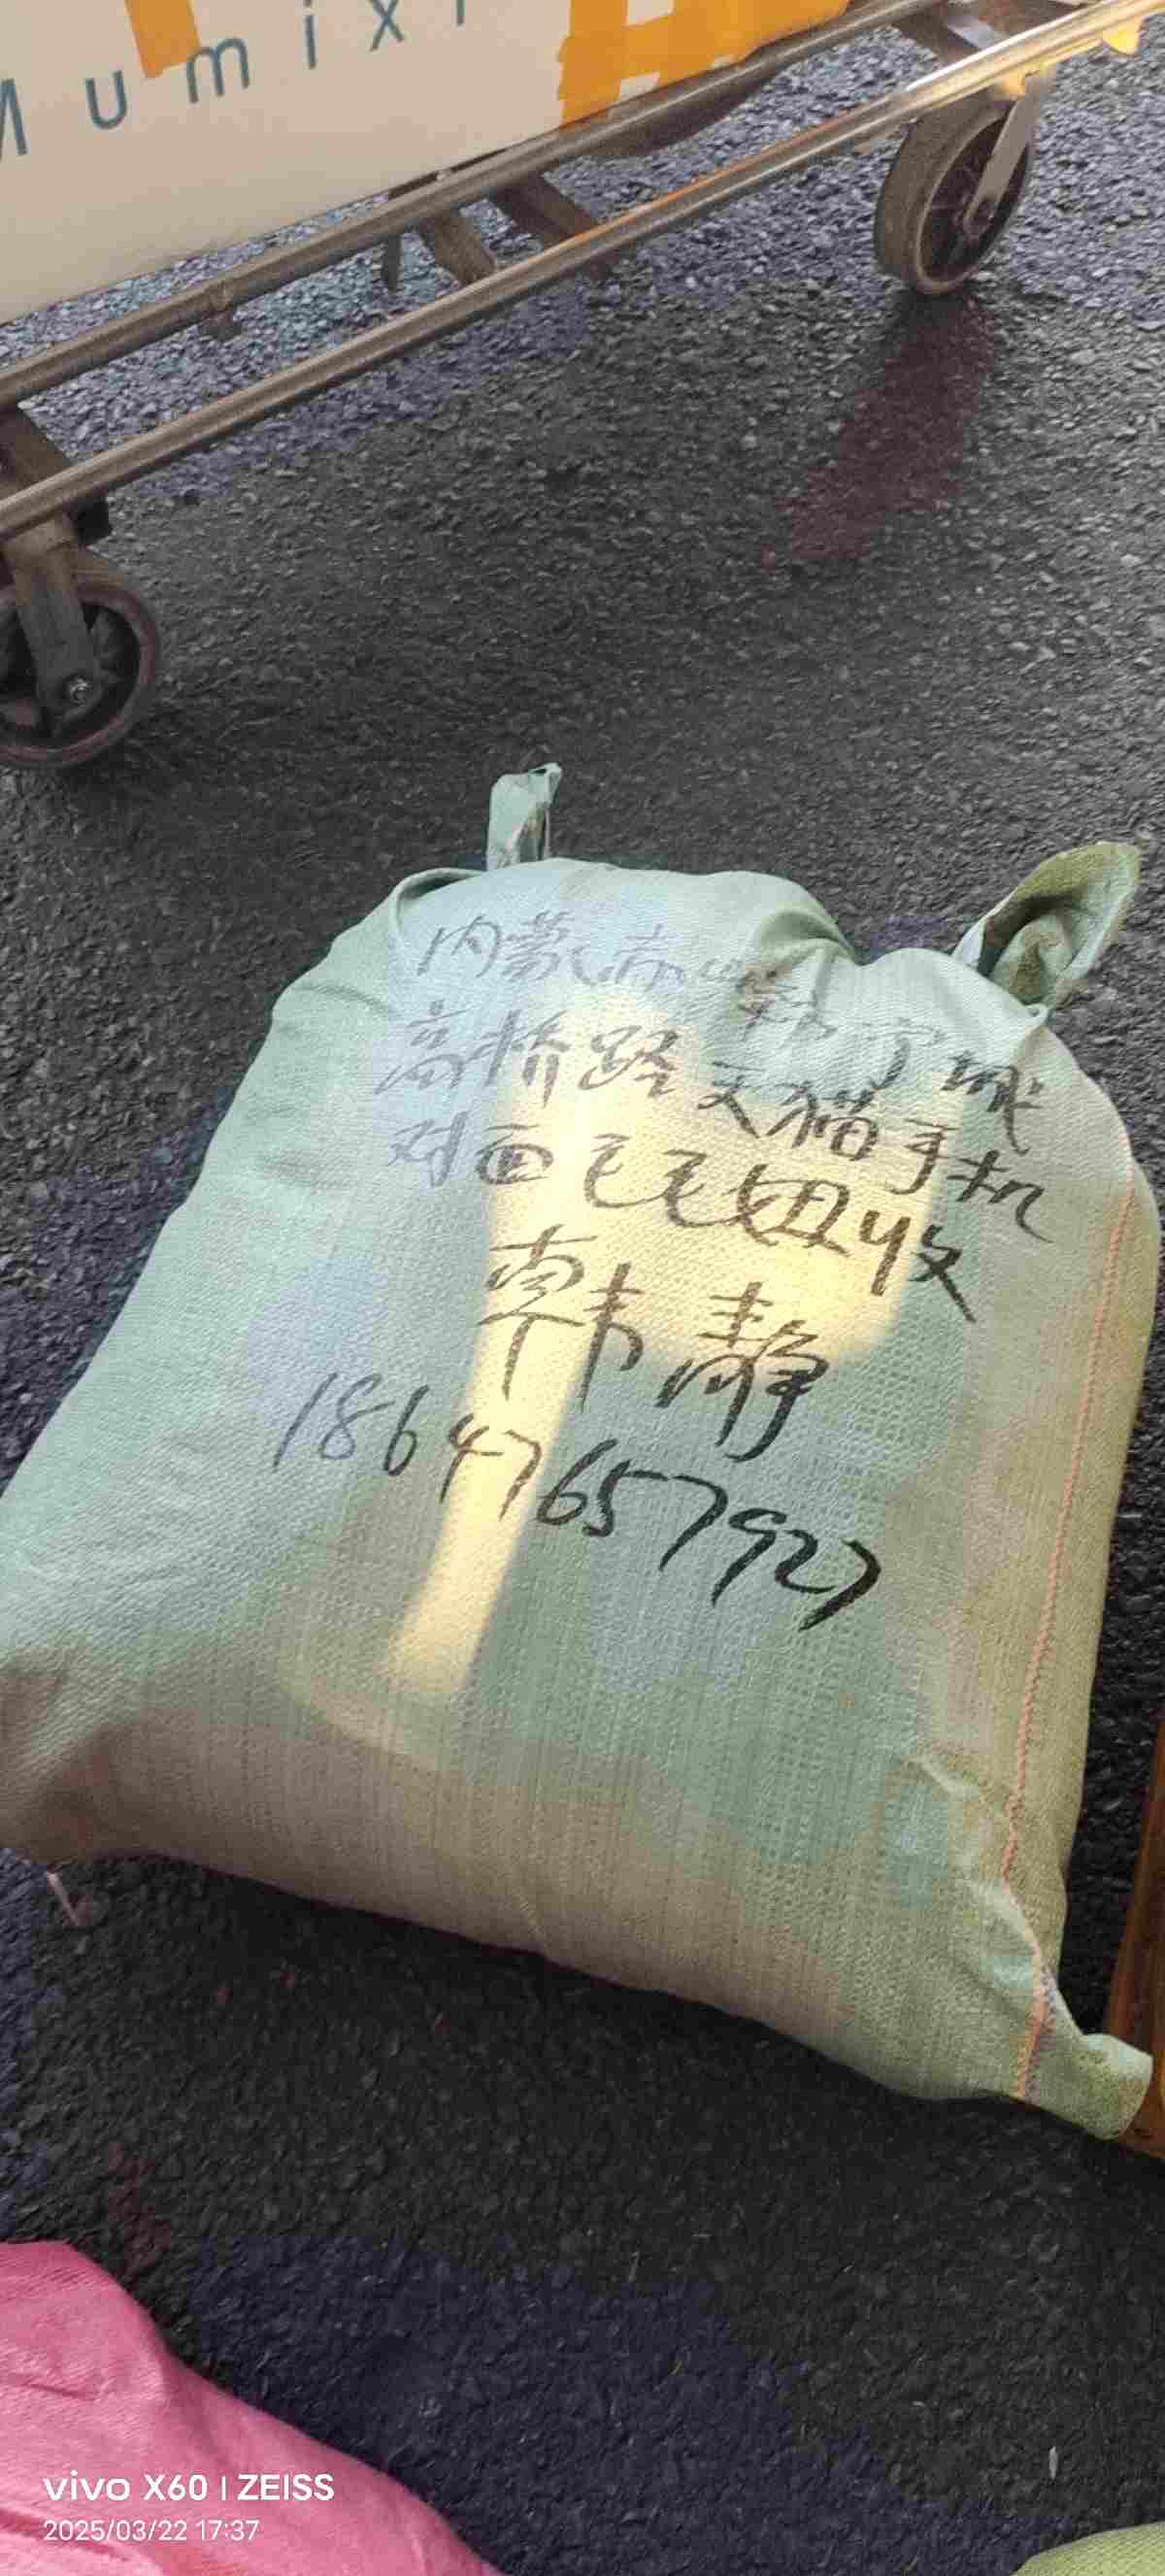 Mumix
内蒙(赤峰)宁城
高桥路天猫手机
对面毛毛妞收
韩静
18647657927
vivo X60 | ZEISS
2025/03/22 17:37